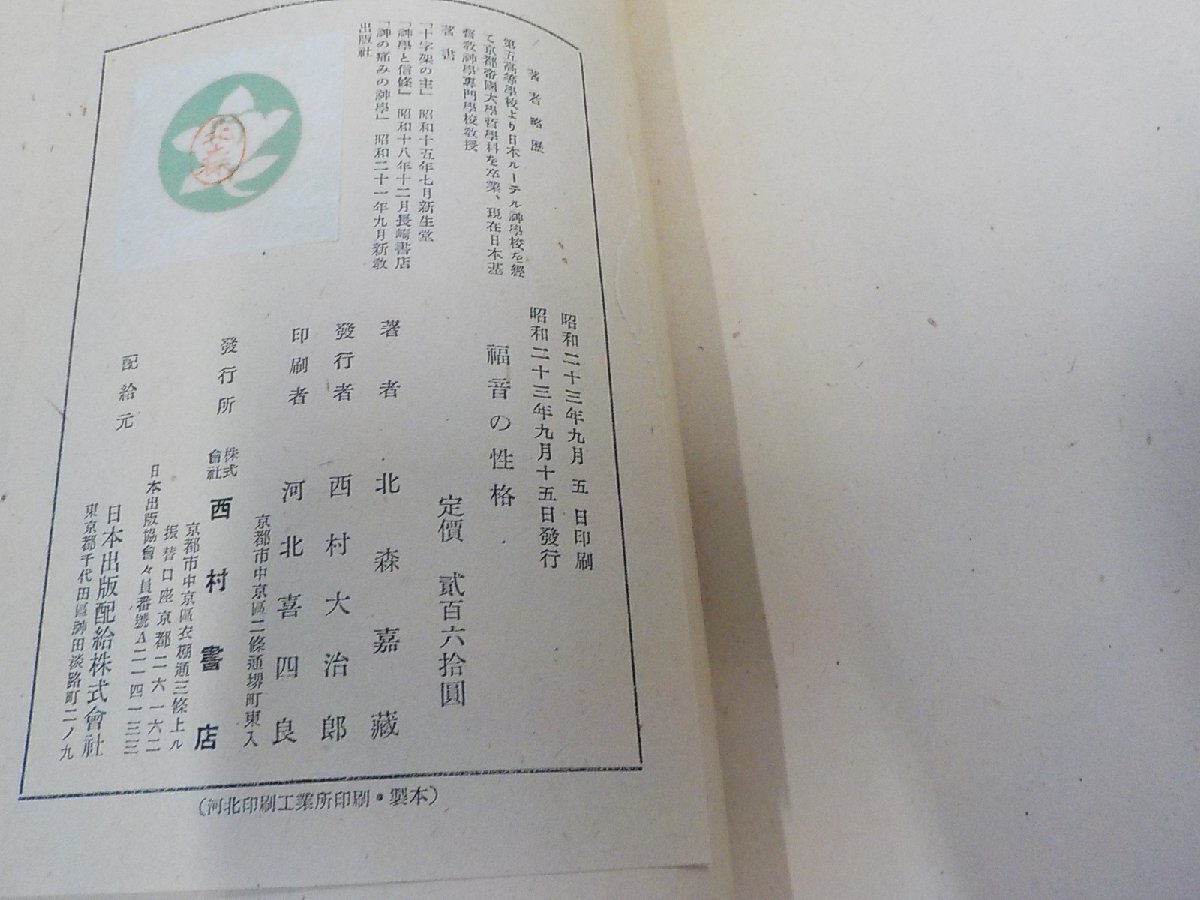 著者略歷
第五高等學校より日本ルーテル神學校を經
て京都帝國大學哲學科を卒業、現在日本基
督敎神學專門學校敎授
著書
「十字架の主」 昭和十五年七月新生堂
「神學と信條」 昭和十八年十二月長崎書店
「神の痛みの神學」 昭和二十一年九月新敎
出版社
北森
昭和二十三年九月 五 日印刷
昭和二十三年九月十五日發行
福音の性格
定價 貳百六拾圓
著者 北森嘉藏
發行者 西村大治郎
印刷者 河北喜四良
京都市中京區二條通堺町東入
發行所 株式會社 西村書店
京都市中京區衣棚通三條上ル
振替口座京都二六一六二
日本出版協會々員番號A二一四一三三
配給元 日本出版配給株式會社
東京都千代田區神田淡路町二ノ九
(河北印刷工業所印刷・製本)